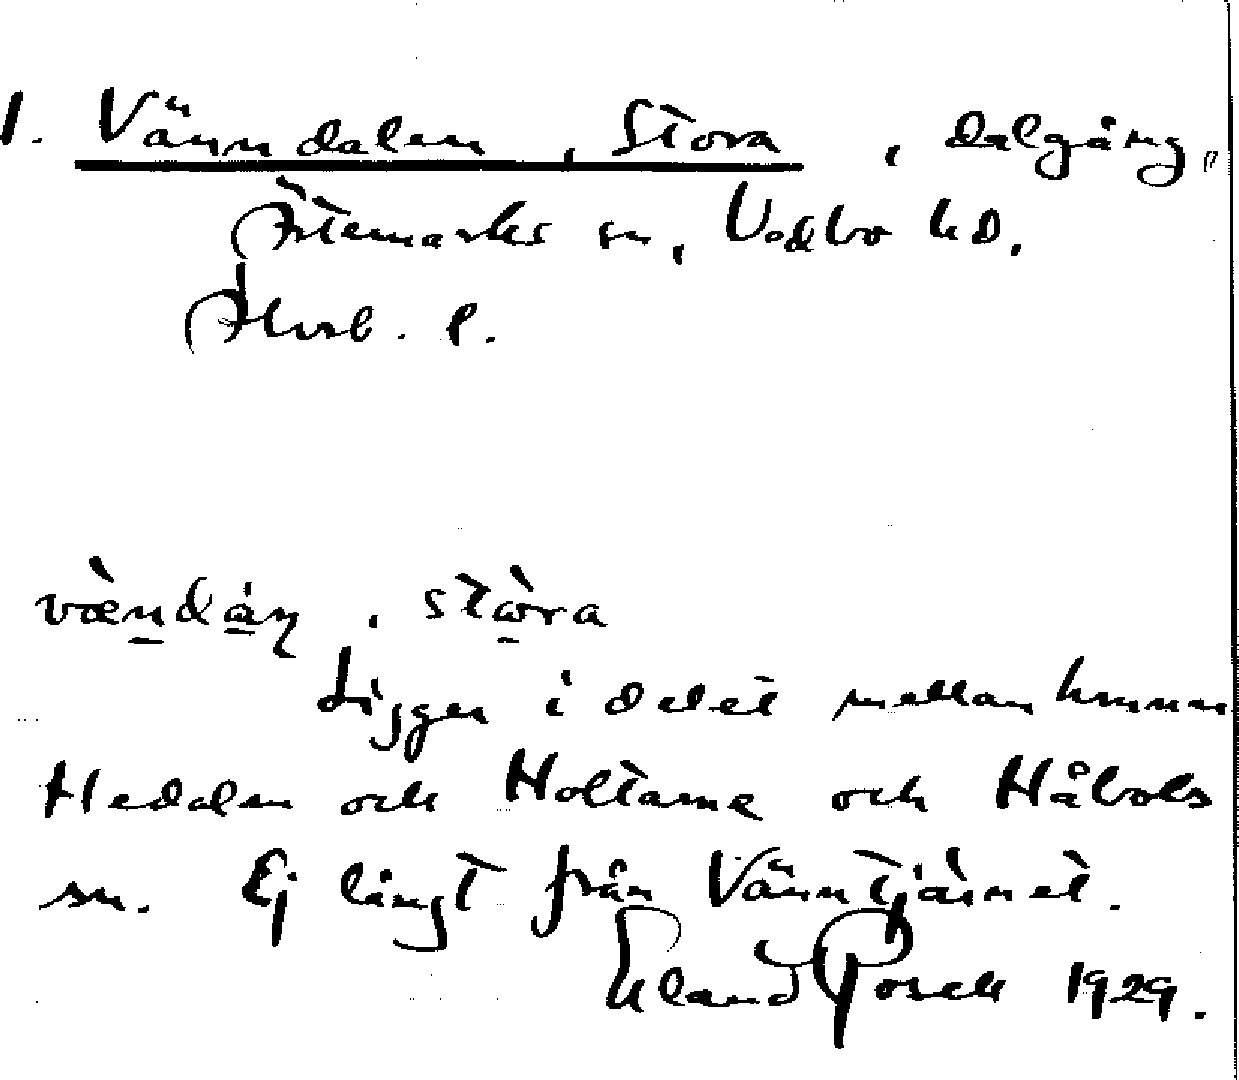 1. Vänndalen, Stora, dalgång,
Ärtemarks sn, Vedbo hd.
Älvsb. l.
væ̀ndáṇ, stòra
Ligger i delet mellan hmnn
Hedalen och Holtarne och Håbols
sn. Ej långt från Vänntjärnet.
Erland Rosell 1929.